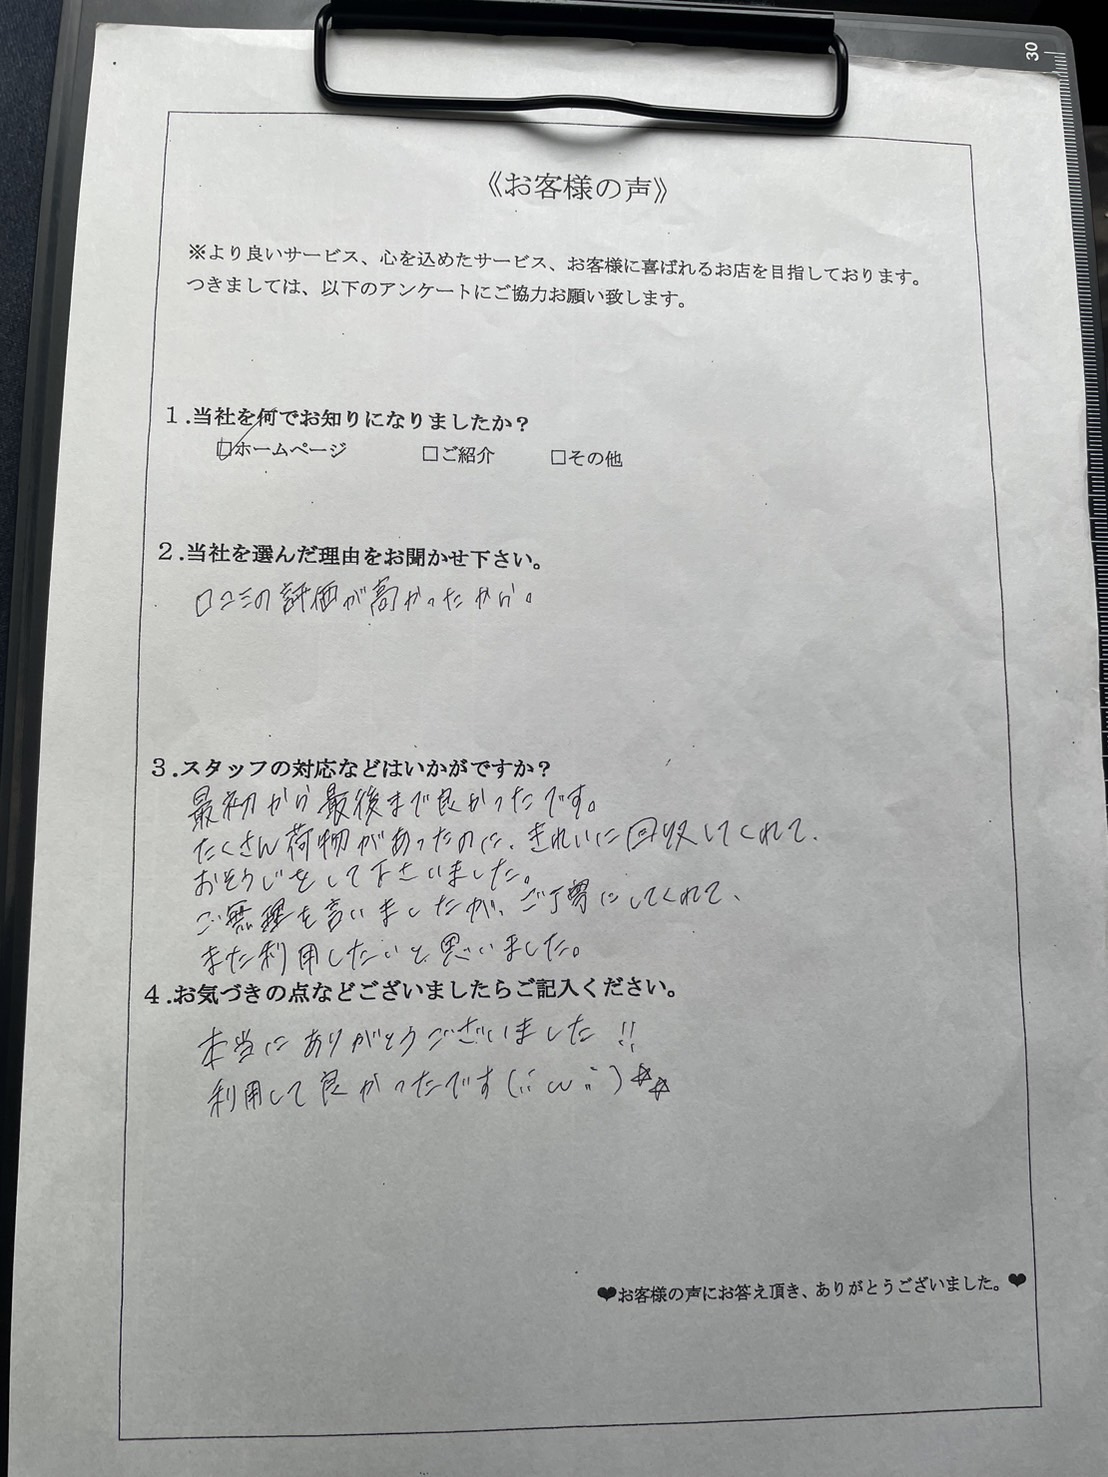 30
《お客様の声》
※より良いサービス、心を込めたサービス、お客様に喜ばれるお店を目指しております。
つきましては、以下のアンケートにご協力お願い致します。
1.当社を何でお知りになりましたか?
☑ホームページ □ご紹介 □その他
2.当社を選んだ理由をお聞かせ下さい。
口コミの評価が高かったから。
3.スタッフの対応などはいかがですか?
最初から最後まで良かったです。
たくさん荷物があったのに、きれいに回収してくれて、
おそうじをして下さいました。
ご無理を言いましたが、ご丁寧にしてくれて、
また利用したいと思いました。
4.お気づきの点などございましたらご記入ください。
本当にありがとうございました!!
利用して良かったです(¨ω¨)☆☆
❤お客様の声にお答え頂き、ありがとうございました。❤